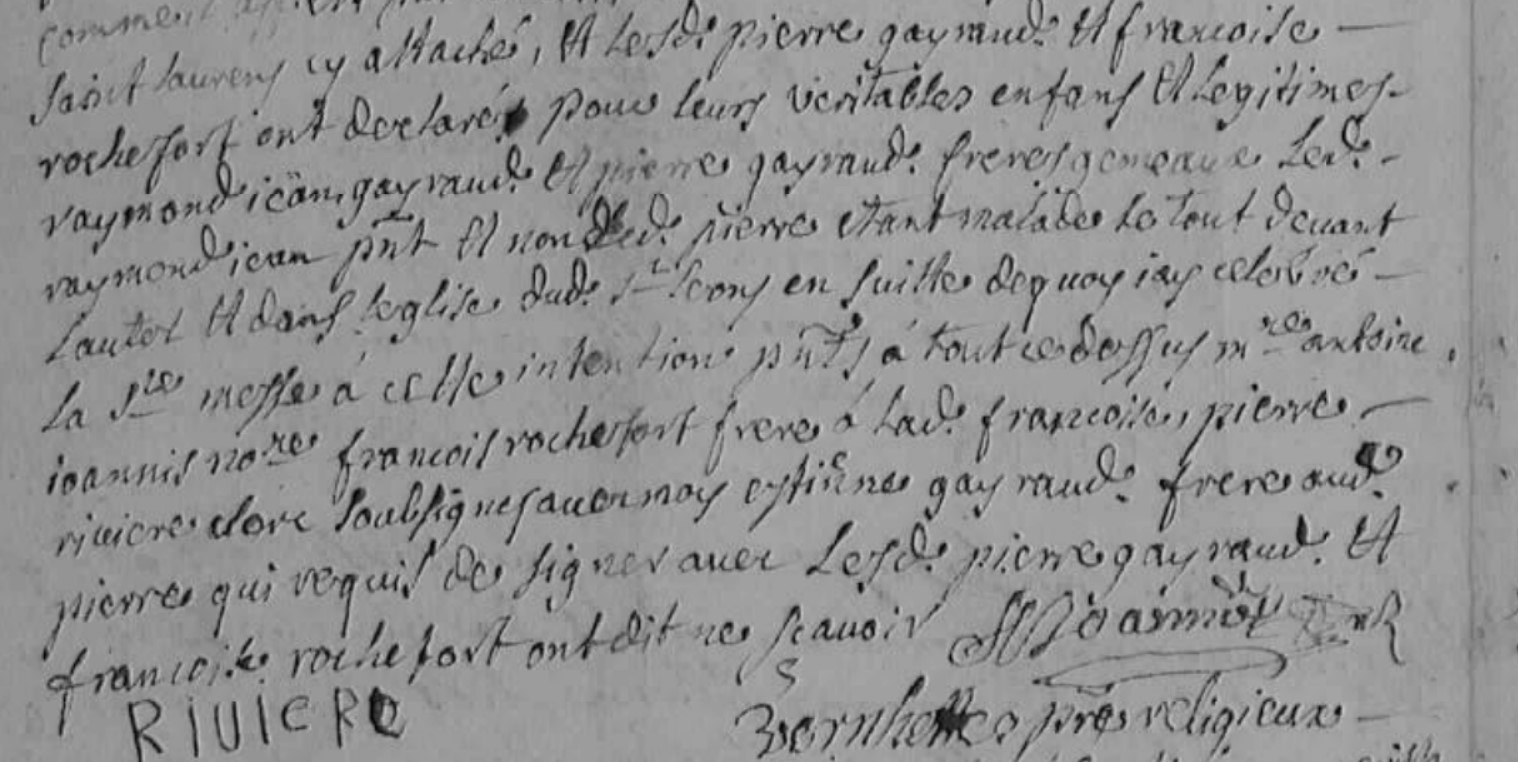 comment
saint laurens cy attaché, et lesd. pierre gayraud. et francoise —
rochefort ont declarés pour leurs veritables enfans et legitimes-
raymond jean gayraud. et pierre gayraud. freres gemeaux led. -
raymond jean pnt et non led. pierre etant malade le tout devant
lautel et dans leglise dud. st leons en suitte dequoy jay celebré —
la ste messe a cette intention pnts á tout ce dessus mre antoine
ioannis nore francois rochefort frere á lad. francoise, pierre —
riviere clerc soubsignes avec moy estienne gayraud. frere aud.
pierre qui requis de signer avec lesd. pierre gayraud. et
francoise rochefort ont dit ne scavoir Joannis
RIVIERE pre religieux —